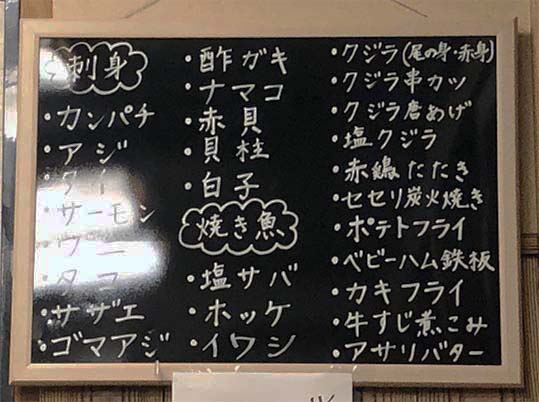 刺身
・カンパチ
・アジ
・タイ
・サーモン
・ウニ
・タコ
・サザエ
・ゴマアジ
・酢ガキ
・ナマコ
・赤貝
・貝柱
・白子
焼き魚
・塩サバ
・ホッケ
・イワシ
・クジラ(尾の身・赤身)
・クジラ串カツ
・クジラ唐あげ
・塩クジラ
・赤鶏たたき
・セセリ炭火焼き
・ポテトフライ
・ベビーハム鉄板
・カキフライ
・牛すじ煮こみ
・アサリバター